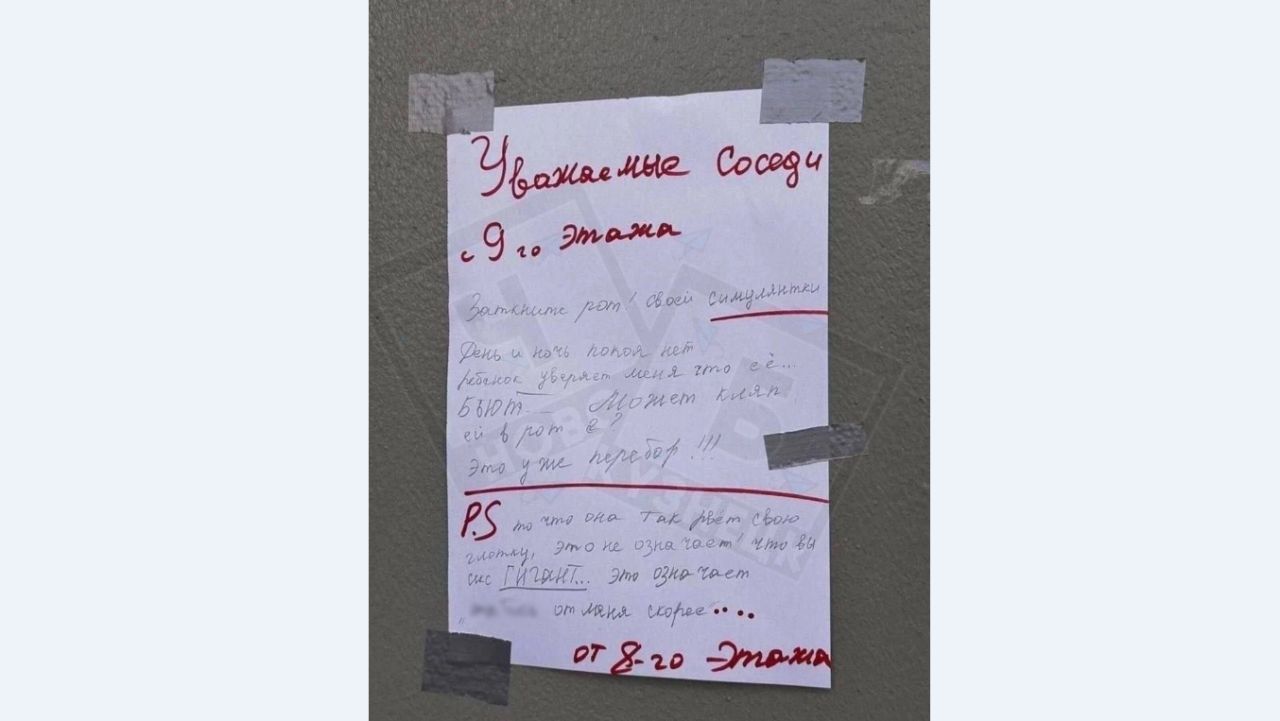 Уважаемые соседи
с 9 го этажа
Заткните рот! своей симулянтки
День и ночь покоя нет
ребёнок уверяет меня что её...
БЬЮТ... Может кляп
ей в рот ?
Это уже перебор!!!
P.S то что она так рвёт свою
глотку, это не означает что вы
секс ГИГАНТ... это означает
от меня скорее....
от 8-го Этажа